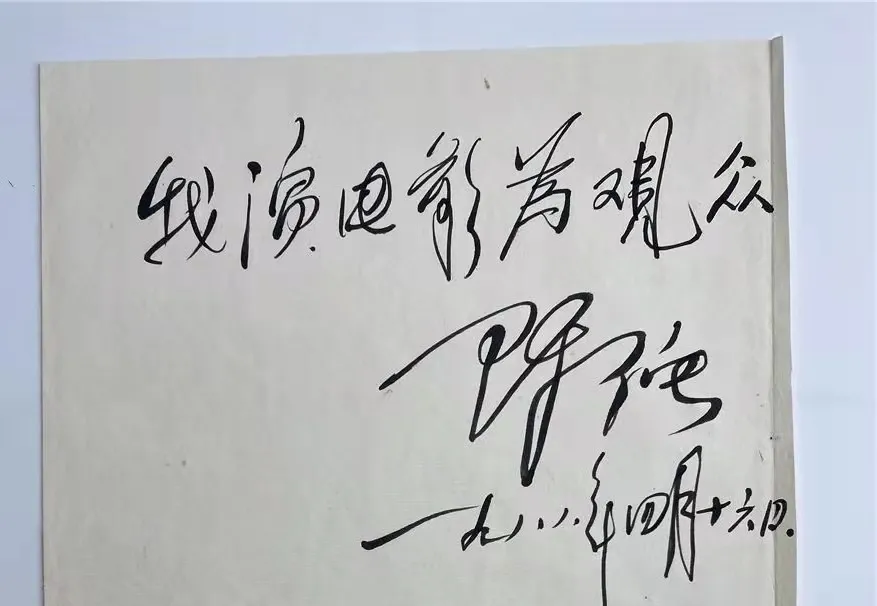 我演电影为观众
陈强
一九八八年四月十六日.